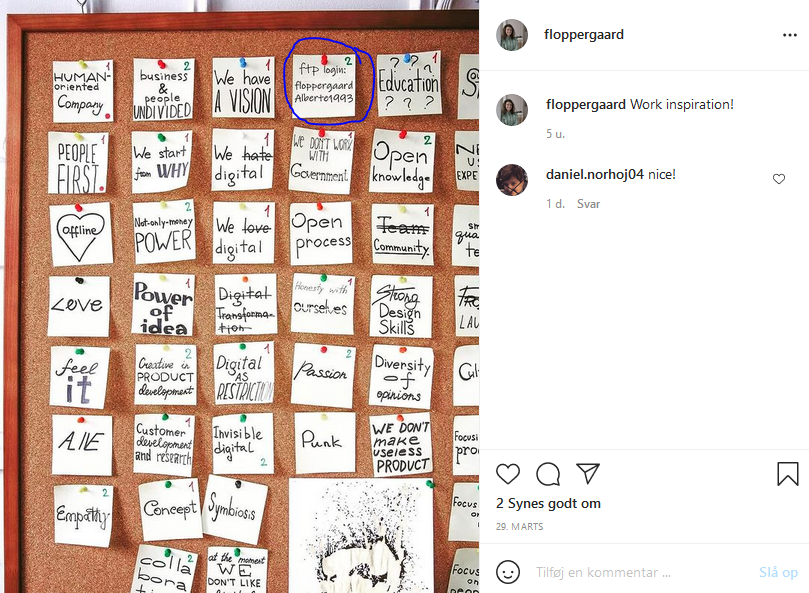 HUMAN-
oriented
Company
2
business
&
people
UNDIVIDED
1
We have
A VISION
2
ftp login:
floppergaard
Alberte1993
1
? ? ?
Education
? ? ?
PEOPLE
FIRST
1
We start
from WHY
1
We hate
digital
1
WE DON'T WORK
WITH
Government
2
Open
knowledge
offline
2
Not-only-money
POWER
1
We love
digital
Open
process
1
Team
Community
Love
1
Power
of
idea
Digital
Transforma-
tion
1
Honesty with
ourselves
Strong
Design
Skills
feel
it
2
Creative in
PRODUCT
development
1
Digital
AS
RESTRICTION
2
Passion
Diversity
of
opinions
ALIVE
1
Customer
development
and research
Invisible
digital
2
Punk
WE DON'T
make
useless
PRODUCT
2
Empathy
1
Concept
Symbiosis
2
colla
bora
at the moment
WE
DON'T LIKE
floppergaard
floppergaard Work inspiration!
5 u.
daniel.norhoj04 nice!
1 d. Svar
2 Synes godt om
29. MARTS
Tilføj en kommentar ...
Slå op